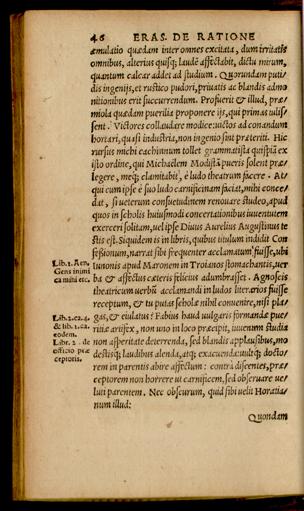 46 ERAS. DE RATIONE
æmulatio quædam inter omnes excitata, dum irritatis
omnibus, alterius quisq; laudē affectabit, dictu mirum,
quantum calcar addet ad studium. Quorundam puti/
dis ingenijs, et rustico pudori, priuatis ac blandis admo
nitionibus erit succurrendum. Profuerit & illud, præ/
miola quædam puerilia proponere ijs, qui primas tulis/
sent. Victores collaudare modice: uictos ad eundum
hortari, quasi industria, non ingenio sint præteriti. Hic
rursus mihi cachinnum tollet grammatista quispiā ex
isto ordine, qui Michaëlem Modistā pueris solent præ/
legere, meq; clamitabit, è ludo theatrum facere. At
qui cum ipse è suo ludo carnificinam faciat, mihi conce/
dat, si ueterum consuetudinem renouare studeo, apud
quos in scholis huiusmodi concertationibus iuuentutem
exerceri solitam, uel ipse Diuus Aurelius Augustinus te
stis est. Siquidem is in libris, quibus titulum indidit Con
fessionum, narrat sibi frequenter acclamatum fuisse, ubi
Iunonis apud Maronem in Troianos stomachantis, uer/
ba & affectus cæteris felicius adumbrasset. Agnoscis
theatricum uerbū acclamandi in ludos literarios fuisse
receptum, & tu putas scholæ nihil conuenire, nisi pla/
gas, & eiulatus? Fabius haud uulgaris formandæ pue/
ritiæ artifex, non uno in loco præcipit, iuuenum studia
non asperitate deterrenda, sed blandis applausibus, mo
destisq; laudibus alenda, atq; exacuenda: utiq; docto/
rem in parentis abire affectum: contrà discentes, præ/
ceptorem non horrere ut carnificem, sed obseruare ue/
luti parentem. Nec obscurum, quid sibi uelit Horatia/
num illud:
Quondam
Lib. 1. Aen.
Gens inimi
ca mihi etc.
Lib. 2. ca. 4.
& lib. 1. ca.
eodem.
Libr. 2. de
officio præ
ceptoris.